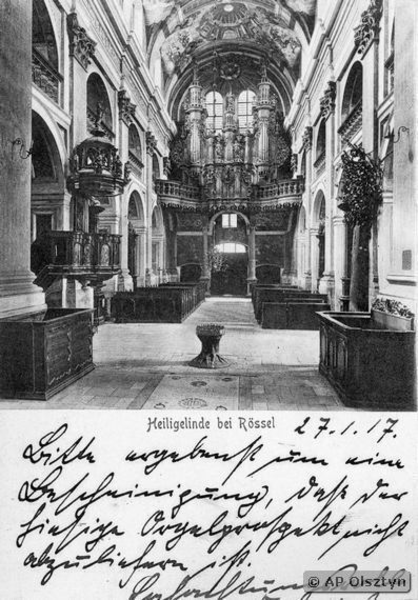 Heiligelinde bei Rössel
27.1.17.
Bitte ergebenst um eine
Bescheinigung, daß der
hiesige Orgelprospekt nicht
abzuliefern ist.
© AP Olsztyn